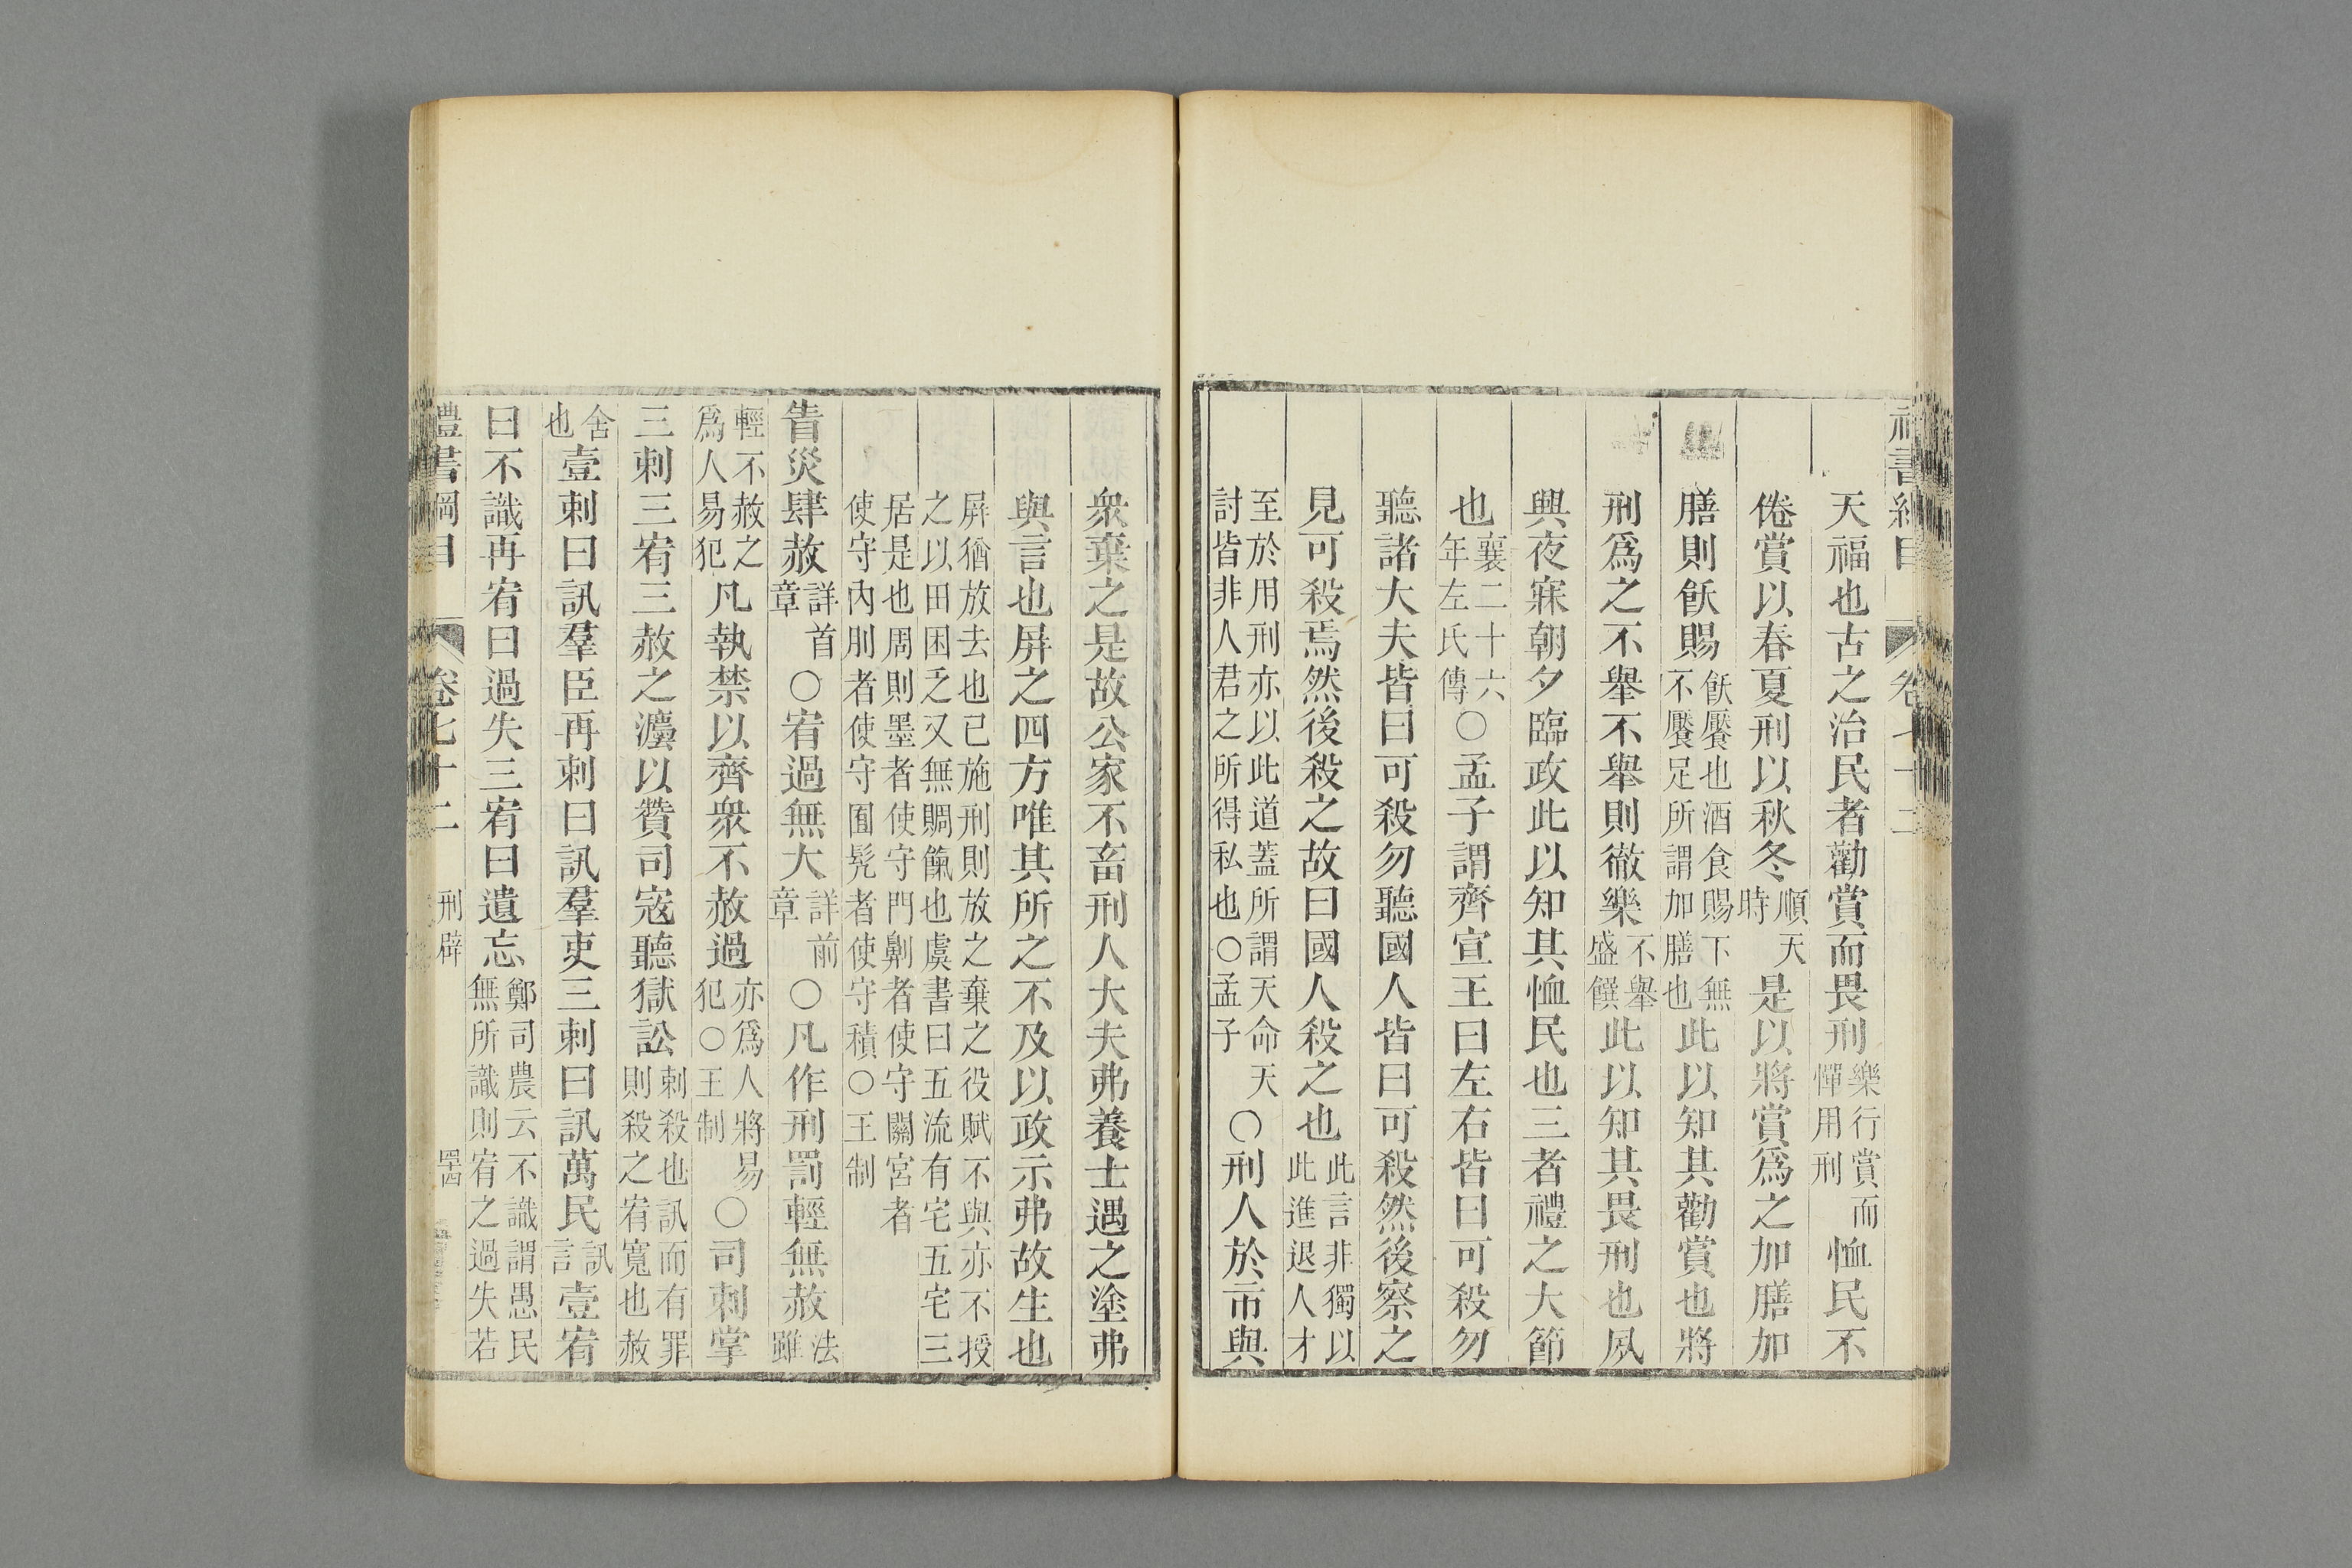 天福也古之治民者勸賞而畏刑樂行賞而憚用刑恤民不
倦賞以春夏刑以秋冬順天時是以將賞爲之加膳加
膳則飫賜飫饜也酒食賜下無不饜足所謂加膳也此以知其勸賞也將
刑爲之不舉不舉則徹樂不舉盛饌此以知其畏刑也夙
興夜寐朝夕臨政此以知其恤民也三者禮之大節
也襄二十六年左氏傳〇孟子謂齊宣王曰左右皆曰可殺勿
聽諸大夫皆曰可殺勿聽國人皆曰可殺然後察之
見可殺焉然後殺之故曰國人殺之也此言非獨以此進退人才
至於用刑亦以此道蓋所謂天命天討皆非人君之所得私也〇孟子〇刑人於市與
衆棄之是故公家不畜刑人大夫弗養士遇之塗弗
與言也屏之四方唯其所之不及以政示弗故生也
屏猶放去也已施刑則放之棄之役賦不與亦不授之以田困乏又無賙餼也虞書曰五流有宅五宅三
居是也周則墨者使守門劓者使守關宮者使守內刖者使守囿髠者使守積〇王制
眚災肆赦詳首章〇宥過無大詳前章〇凡作刑罰輕無赦法雖
輕不赦之爲人易犯凡執禁以齊衆不赦過亦爲人將易犯〇王制〇司刺掌
三刺三宥三赦之灋以贊司寇聽獄訟刺殺也訊而有罪則殺之宥寬也赦
舍也壹刺曰訊羣臣再刺曰訊羣吏三刺曰訊萬民訊言壹宥
曰不識再宥曰過失三宥曰遺忘鄭司農云不識謂愚民無所識則宥之過失若
禮書綱目 卷七十二 刑辟